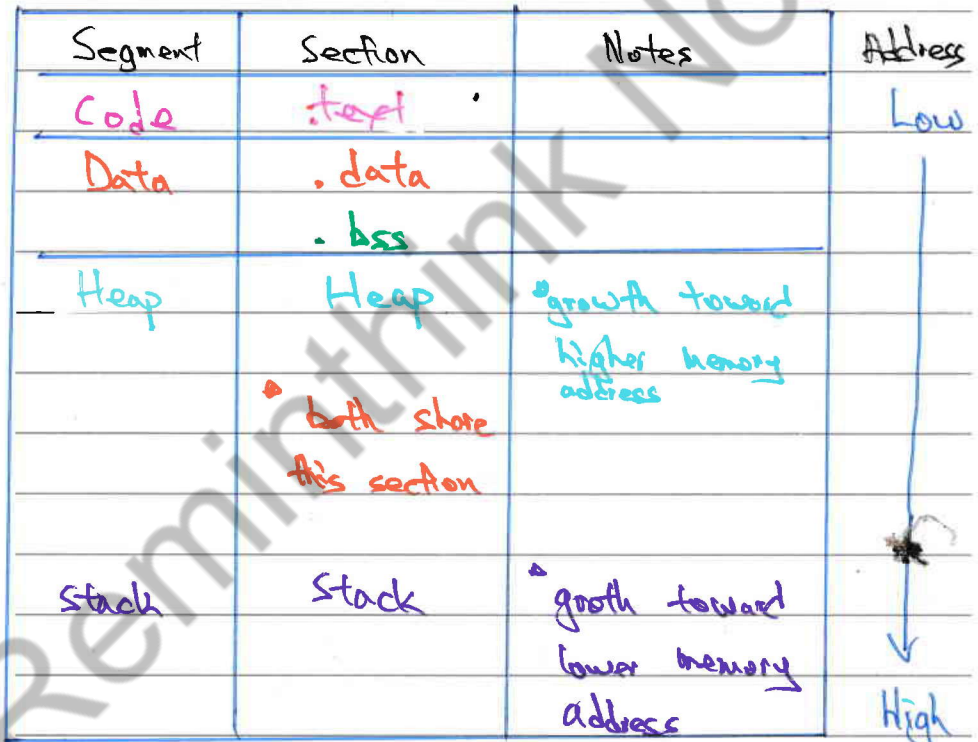 Segment Section Notes Address
Code .text Low
Data .data
.bss
Heap Heap growth toward
higher memory
address
both share
this section
stack stack grooth toward
lower memory
address High
Reminthink No